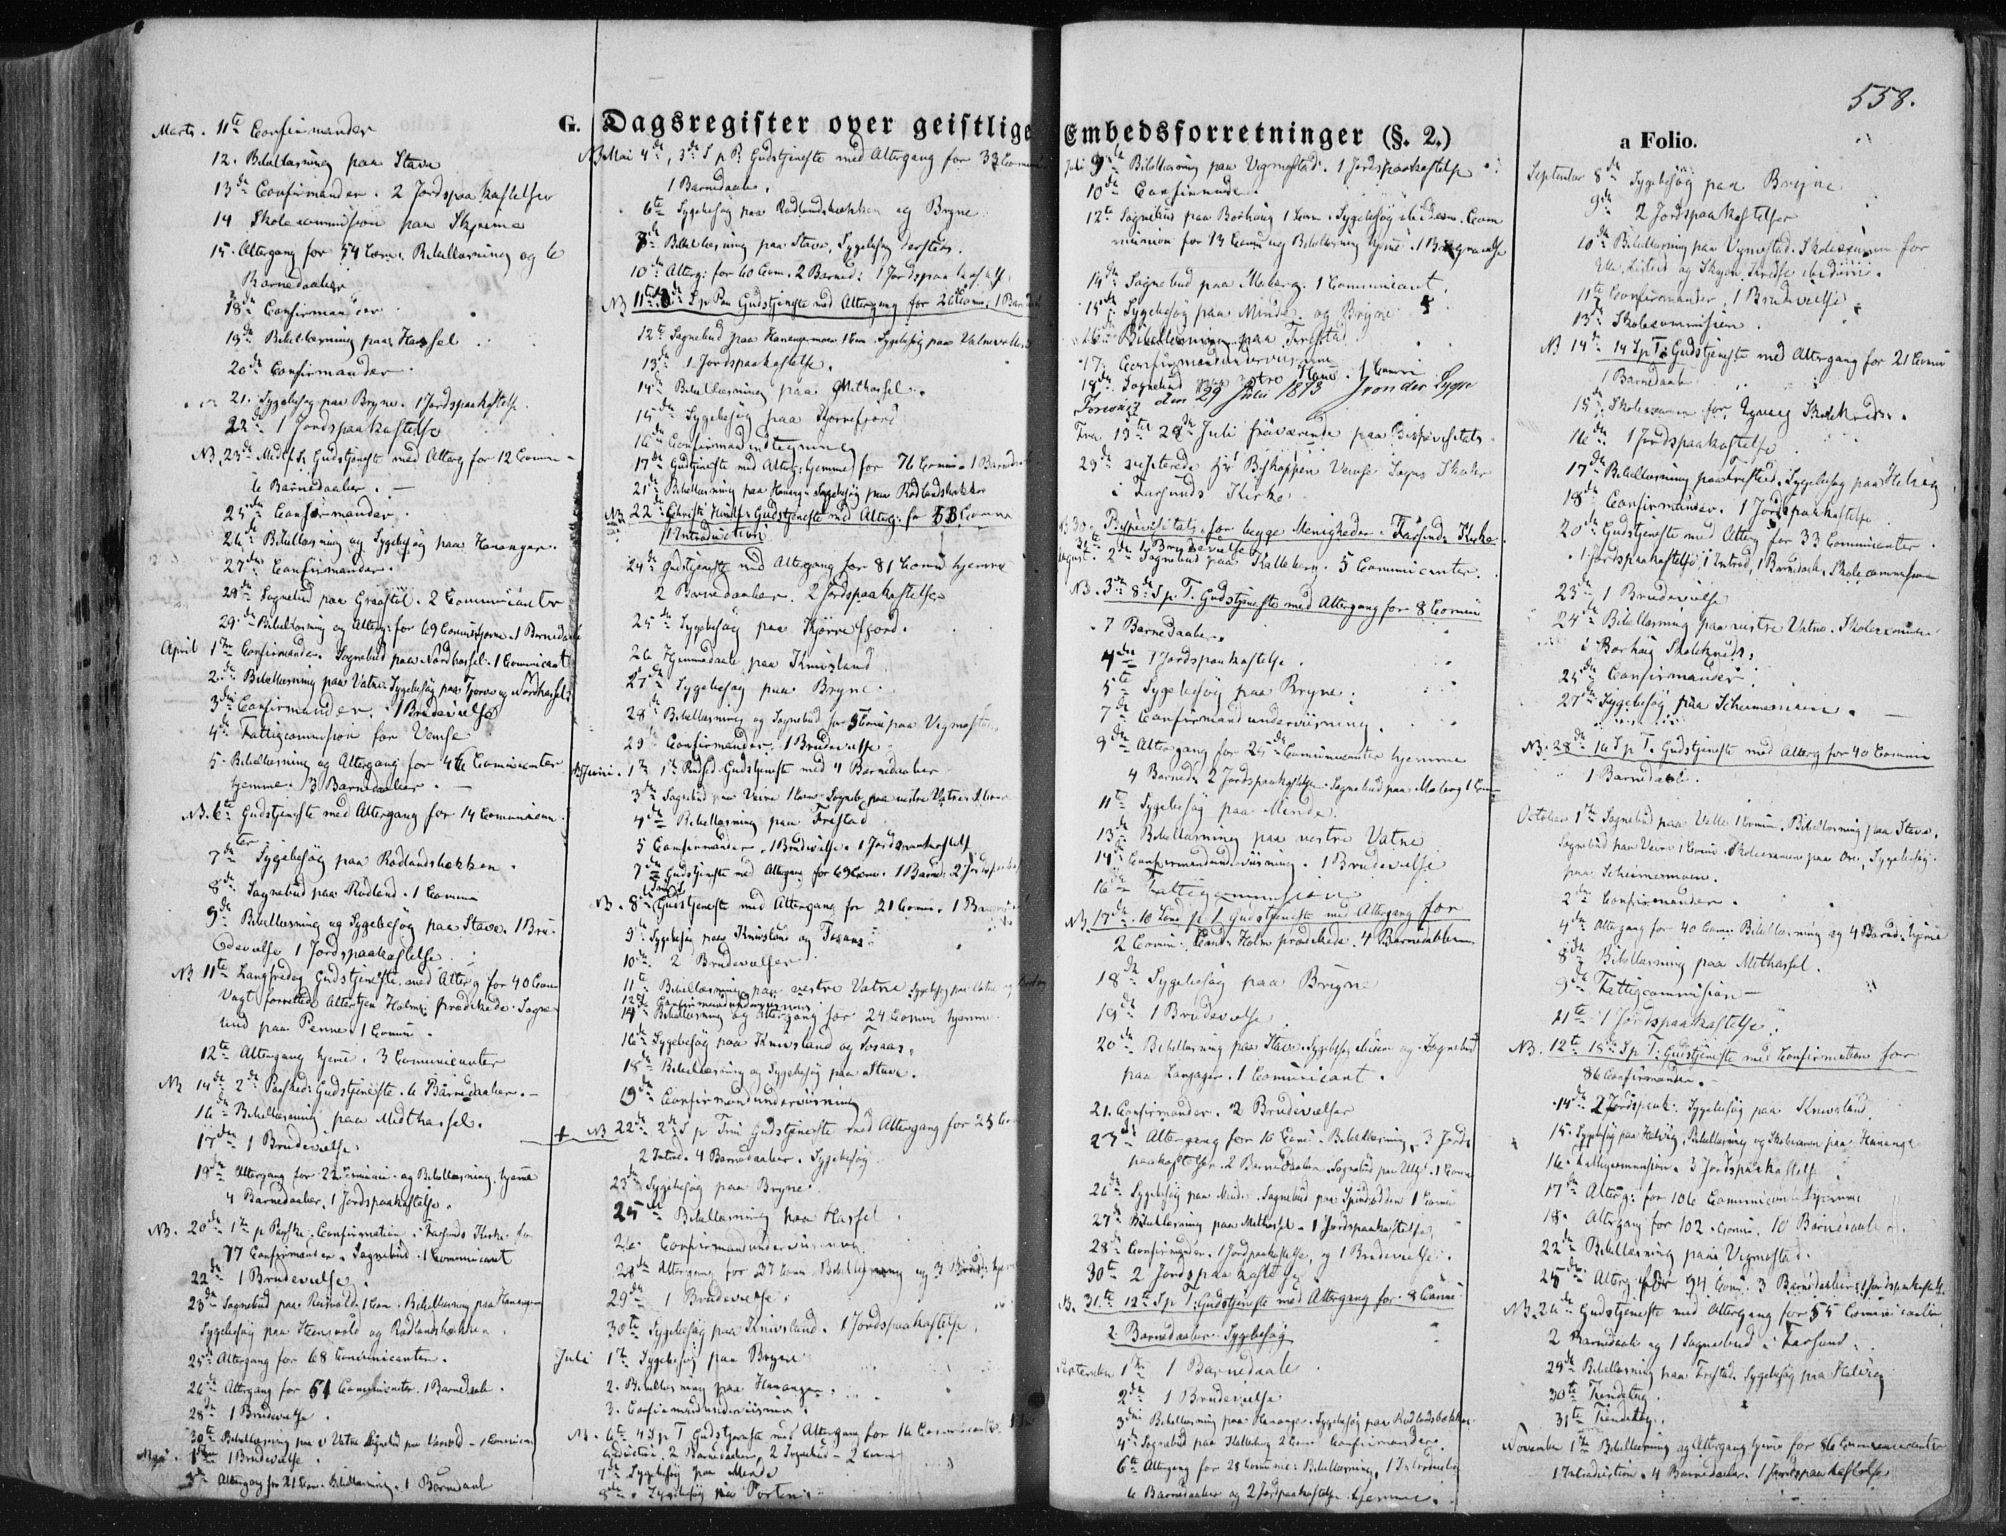 558.
G. Dagsregister over geistlige Embedsforretninger (§. 2.)
a Folio.
Marts. 11te Confirmander
12. Bibellæsning paa Stave
13de Confirmander. 2 Jordspaakastelser
14 Skolecommission paa
15. Altergang for 54 Com. Bibellæsning og 6
Barnedaaber
18de Confirmander
19de Bibellæsning paa Hassel
20de Confirmander
21. Sygebesøg paa Bryne. 1 Jordspaakastelse
22de 1 Jordspaakastelse
NB. 23de Gudstjeneste med Alterg for 12 Comm
6 Barnedaaber.
25de Confirmander.
26de Bibellæsning og Sygebesøg paa Hananger.
27de Confirmander.
28de Sognebud paa 2 Communicanter
29de Bibellæsning og Alterg: for 69 1 Barnedaab
April 1ste Confirmander. Sognebud paa Nordhassel. 1 Communicant
2den Bibellæsning paa Vatne. Sygebesøg paa og Nordhassel
3die Confirmander. 1 Brudevielse
4de Fattigcommission for
5. Bibellæsning og Altergang for 46 Communicanter
hjemme. 3 Barnedaaber.
NB. 6te Gudstjeneste med Altergang for 14 Communican
ter
7de Sygebesøg paa Rødlandsbakken.
8de Sognebud paa Rødland. 1 Commu
9de Bibellæsning og Sygebesøg paa Stave. 1 Bru-
devielse 1 Jordspaakastelse
NB 11te Langfredag Gudstjeneste med Alterg for 40 Com
Vogt forrettede Altertjen Holm prædikede. Sogne
bud paa Penne. 1 Commu.
12te Altergang hjeme. 3 Communicanter
NB 14de 2den Paasked: Gudstjeneste. 6 Barnedaaber.
16de Bibellæsning paa Midthassel.
17de 1 Brudevielse
19de Altergang for 22 og Bibellæsning hjeme
4 Barnedaaber. 1 Jordspaakastelse.
NB. 20de 1ste p Paaske. Confirmation i Farsunds Kirke for
77 Confirmander. Sognebud. 1 Communicant
22de 1 Brudevielse.
23de Sognebud paa 1 Com. Bibellæsning paa Hananger
Sygebesøg paa og Rødlandsbakken.
25de Altergang for 68 Communicanter.
26de Altergang for 51 Communicanter. 1 Barnedaab.
28de 1 Brudevielse.
30te Bibellæsning paa v Vatne Sognebud paa
Maji 1ste 1 Brudevielse.
3de Altergang for 21 Com. Bibellæsning. 1 Barnedaab
NB Mai 4de, 3de S p P: Gudstjeneste med Altergang for 33 Commu
1 Barnedaab.
6te Sygebesøg paa Rødlandsbakken og Bryne
7de Bibellæsning paa Stave. Sygebesøg
10de Alterg: for 60 Com. 2 Barned: 1 Jordspaakastelse
NB 11te S p Gudstjeneste med Altergang for 26 Com. 1 Barnedaab
12te Sognebud paa 1 Com. Sygebesøg paa
13de 1 Jordspaakastelse.
14de Bibellæsning paa Mithassel.
15de Sygebesøg paa
16de
17de Gudtjeneste med Alterg: hjemme for 76 Commu. 1 Barnedaab
21de Bibellæsning paa Hanang. Sygebesøg paa Rødlandsbakken
NB 22de Christi Himlf: Gudstjeneste med Alterg: for 53 Comm
1 Introduction
24de Gudstjeneste med Altergang for 81 Commu hjemme
2 Barnedaaber. 2 Jordspaakastelser
25de Sygebesøg paa Kjørrefjord.
26 Hjemmedaab paa Knivsland
27de Sygebesøg paa Bryne.
28 Bibellæsning og Sognebud for 5 Commu paa Vigmostad
29de Confirmander. 1 Brudevielse
Juni. 1ste 1ste Pintsed Gudstjeneste med 4 Barnedaaber
3de Sognebud paa 1 Com. Sogneb: paa vestre Vatne 1
4de Bibellæsning paa Frestad
5 Confirmander. 1 Brudevielse. 1 Jordspaakastelse
7de Gudstjeneste med Altergang for 69 Com. 1 Barned: 2 Jordspaakast
NB. 8de Gudstjeneste med Altergang for 21 Commu. 1 Barnedaab
9de Sygebesøg paa Knivsland og Tosaas
10de 2 Brudevielser
11te Bibellæsning paa vestre Vatne Sygebesøg paa
12te Confirmandundervisning
14de Bibellæsning og Altergang for 24 Commu hjemme
16de Sygebesøg paa Knivsland og Tosaas.
18de Bibellæsning og Sygebesøg paa Stave.
19de Confirmandundervisning
NB 22de 2de S p Trin Gudstjeneste med Altergang for 25 Com
2 Introd. 4 Barnedaaber. Sygebesøg
23de Sygebesøg paa Bryne.
25de Bibellæsning paa Hassel
26. Confirmandundervisning
28de Altergang for 37 Com. Bibellæsning og 3 hjem
29de 1 Brudevielse.
30te Sygebesøg paa Knivsland. 1 Jordspaakastelse.
Juli 1ste Sygebesøg paa Bryne
2. Bibellæsning paa Hananger.
3. Confirmandundervisning
NB. 6te 4 S p T Gudstjeneste med Altergang for 16 Communicanter. 1 In
troduction. 2 Barnedaaber. 2 Sognebud - 2 Comm
7de Sygebesøg paa Minde
8de Sygebesøg paa
Juli 9de Bibellæsning paa Vigmostad. 1 Jordspaakastelse
10de Confirmande
12te Sognebud paa Borhoug 1 Com. Sygebesøg ibidem. Com
munion for 13 Commu og Bibellæsning hjeme. 1
14de Sognebud paa Moberg. 1 Communicant.
15de Sygebesøg paa Minde og Bryne
16de Bibellæsning paa Frestad
17. Confirmandundervisning
18de Sognebud paa 1 Commu
den 29 Juli 1873
Fra 19de 28de Juli fraværende paa Bispevisitats.
29de visiterede Hr Biskoppen Skoler
i Farsunds Kirke.
NB 30te Bispevisitats for begge Menigheder i Farsunds Kirke
31te 1 Brudevielse
August. 2den Sognebud paa Kalleberg. 5 Communicanter.
NB. 3de 8de S p T. Gudstjeneste med Altergang for 8 Commu
7 Barnedaaber.
4de 1 Jordspaakastelse.
5te Sygebesøg paa Bryne.
7de Confirmandundervisning.
9de Altergang for 25 Communicanter hjemme
4 Barned: 2 Jordspaakastelser. Sognebud paa Moberg 1 Com
11te Sygebesøg paa Minde.
13de Bibellæsning paa vestre Vatne
14de Confirmandundervisning. 1 Brudevielse
16de Fattigcommission
NB 17de 10 Sønd p T Gudstjeneste med Altergang for
2 Commu. Cand: Holm prædikede. 4 Barnedaaber
18de Sygebesøg paa Bryne
19de 1 Brudevielse
20de Bibellæsning paa Stave. Sygebesøg ibidem og Sognebud
paa Langager. 1 Communicant.
21. Confirmander. 2 Brudevielser
23de Altergang for 16 Comu. Bibellæsning. 3 Jords
paakastelser. 2 Barnedaaber. Sognebud paa 1 Com
26de Sygebesøg paa Minde. Sognebud paa 1 Comu
27de Bibellæsning paa Methassel. 1 Jordspaakastelse.
28de Confirmander. 1 Jordpaakastelse og 1 Brudevielse.
30te 2 Jordspaakastelser
NB. 31te 12te S p T. Gudstjeneste med Altergang for 8 Commu
2 Barnedaaber. Sygebesøg
September 1ste 1 Barnedaab
2de 1 Brudevielse
3die Bibellæsning paa Hananger. Sygebesøg paa Rødlandsbakken
4de Sognebud paa Kalleberg 2 Com. Confirmander.
6te Altergang for 28 Commu: Bibellæsning. 1 Introduction
6 Barnedaaber og 2 Jordpaakastelse hjemme.
September 8de Sygebesøg paa Bryne
9de 2 Jordspaakastelser
10de Bibellæsning paa Vigmostad. Skoleexamen for
Ulle, Listeid og ibidem.
11te Confirmander. 1 Brudevielse
13de Skolecommission.
NB 14de 14 S p T. Gudstjeneste med Altergang for 21 Commu
1 Barnedaab
15de Skoleexamen for Skolekreds.
16de 1 Jordspaakastelse
17de Bibellæsning paa Frestad. Sygebesøg paa Helvig
18de Confirmander. 1 Jordspaakastelse.
20de Gudstjeneste med Alterg for 33 Communicanter.
1 Jordspaakastelse, 1 Introd, 1 Barnedaab, Skolecommission
23de 1 Brudevielse
24de Bibellæsning paa vestre Vatne. Skoleexamen
i Borhoug Skolekreds.
25de Confirmander.
27de Sygebesøg paa
NB. 28de 16 S p T. Gudstjeneste med Alterg for 40 Commu
1 Barnedaab.
October 1ste Sognebud paa Velle 1 Comu. Bibellæsning paa Stave.
Sognebud paa 1 Comu. Skoleexamen paa Ore. Sygebesøg
paa
2de Confirmander.
4de Altergang for 40 Com. Bibellæsning og 4 Barned: hjeme
8de Bibellæsning paa Methassel.
9de Fattigcommission
11te 1 Jordspaakastelse.
NB. 12te 18de S p T. Gudstjeneste med Confirmation for
86 Confirmander.
14de 2 Jordspaak: Sygebesøg paa Knivsland.
15. Sygebesøg paa Helvig. Bibellæsning og Skoleexamen paa Hanange
16. Fattigcommission. 3 Jordspaakastels
17de Alterg: for 106 Communicanter hjemme
18. Altergang for 102 Commu. 10 Barnedaaber.
22de Bibellæsning paa Vigmostad.
25de Alterg: for 94 Comu. 3 Barnedaaber. 1 Jordspaakastelse.
NB. 26de Gudstjeneste med Altergang for 55 Communicanter
2 Barnedaab og 1 Sognebud i Farsund.
29de Bibellæsning paa Frestad. Sygebesøg paa Helvig
30te Tiendetag.
31te Tiendetag.
November 1ste Bibellæsning og Altergang hjeme for 86 Communicanter
1 Introduction. 4 Barnedaaber. 1 Jordspaakastelse